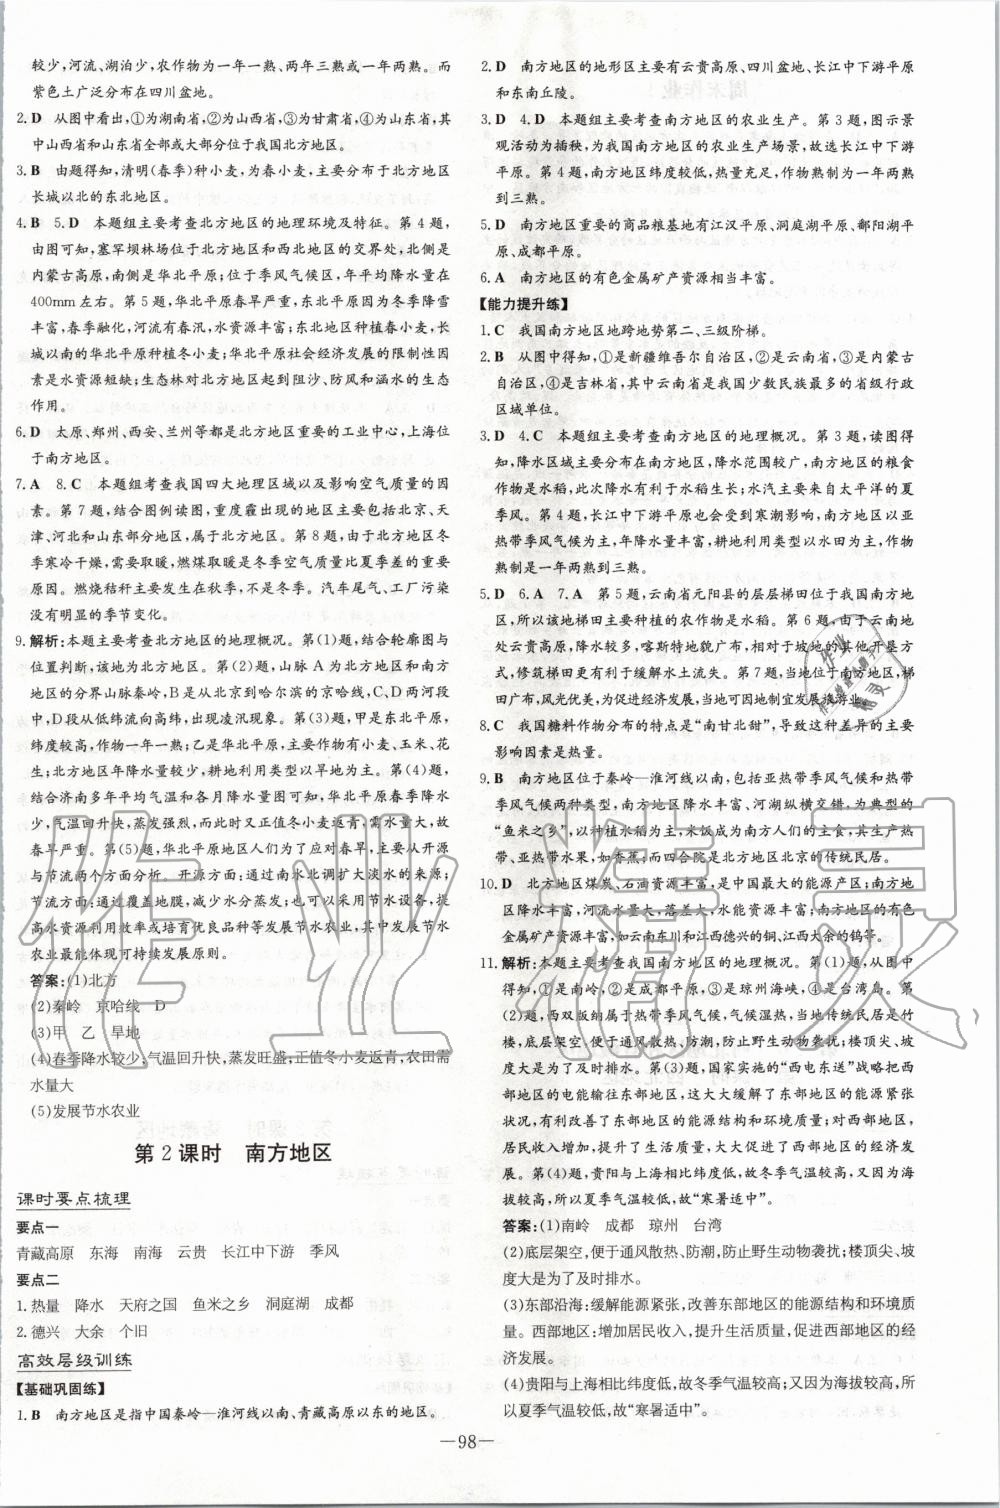 较少,河流、湖泊少,农作物为一年一熟、两年三熟或一年两熟。而
紫色土广泛分布在四川盆地。
2. D 从图中看出,①为湖南省,②为山西省,③为甘肃省,④为山东省,其
中山西省和山东省全部或大部分位于我国北方地区。
3. B 由题得知,清明(春季)种小麦,为春小麦,主要分布于北方地区
长城以北的东北地区。
4. B 5. D 本题组主要考查北方地区的地理环境及特征。第4题,
由图可知,塞罕坝林场位于北方地区和西北地区的交界处,北侧是
内蒙古高原,南侧是华北平原;位于季风气候区,年平均降水量在
400mm左右。第5题,华北平原春旱严重,东北平原因为冬季降雪
丰富,春季融化,河流有春汛,水资源丰富;东北地区种植春小麦,长
城以南的华北平原种植冬小麦;华北平原社会经济发展的限制性因
素是水资源短缺;生态林对北方地区起到阻沙、防风和涵水的生态
作用。
6. D 太原、郑州、西安、兰州等都是北方地区重要的工业中心,上海位
于南方地区。
7. A 8. C 本题组考查我国四大地理区域以及影响空气质量的因
素。第7题,结合图例读图,重度霾出现的地区主要包括北京、天
津、河北和山东部分地区,属于北方地区。第8题,由于北方地区冬
季寒冷干燥,需要取暖,燃煤取暖是冬季空气质量比夏季差的重要
原因。燃烧秸秆主要发生在秋季,不是冬季。汽车尾气、工厂污染
没有明显的季节变化。
9. 解析:本题主要考查北方地区的地理概况。第(1)题,结合轮廓图与
位置判断,该地为北方地区。第(2)题,山脉A为北方地区和南方
地区的分界山脉秦岭,B是从北京到哈尔滨的京哈线,C、D两河段
中,D段从低纬流向高纬,出现凌汛现象。第(3)题,甲是东北平原,
纬度较高,作物一年一熟;乙是华北平原,主要作物有小麦、玉米、花
生;北方地区年降水量较少,耕地利用类型以旱地为主。第(4)题,
结合济南多年平均气温和各月降水量图可知,华北平原春季降水
少,气温回升快,蒸发强烈,而此时又正值冬小麦返青,需水量大,故
春旱严重。第(5)题,华北平原地区人们为了应对春旱,主要从开源
与节流两个方面分析。开源方面:通过南水北调扩大淡水的来源;
节流方面:通过覆盖地膜,减少水分蒸发;也可以使用节水设备,提
高水资源利用效率或培育优良品种等发展节水农业,其中发展节水
农业最能体现可持续发展原则。
答案:(1)北方
(2)秦岭 京哈线 D
(3)甲 乙 旱地
(4)春季降水较少;气温回升快,蒸发旺盛;正值冬小麦返青,农田需
水量大
(5)发展节水农业
第2课时 南方地区
课时要点梳理
要点一
青藏高原 东海 南海 云贵 长江中下游 季风
要点二
1. 热量 降水 天府之国 鱼米之乡 洞庭湖 成都
2. 德兴 大余 个旧
高效层级训练
【基础巩固练】
1. B 南方地区是指中国秦岭—淮河线以南、青藏高原以东的地区。
2. D 南方地区的地形区主要有云贵高原、四川盆地、长江中下游平原
和东南丘陵。
3. D 4. D 本题组主要考查南方地区的农业生产。第3题,图示景
观活动为插秧,为我国南方地区的农业生产场景,故选长江中下游
平原。第4题,南方地区纬度较低,热量充足,作物熟制为一年两熟
到三熟。
5. D 南方地区重要的商品粮基地有江汉平原、洞庭湖平原、鄱阳湖平
原、成都平原。
6. A 南方地区的有色金属矿产资源相当丰富。
【能力提升练】
1. C 我国南方地区地跨地势第二、三级阶梯。
2. B 从图中得知,①是新疆维吾尔自治区,②是云南省,③是内蒙古
自治区,④是吉林省,其中云南省是我国少数民族最多的省级行政
区域单位。
3. D 4. C 本题组主要考查南方地区的地理概况。第3题,读图得
知,降水区域主要分布在南方地区,降水范围较广,南方地区的粮食
作物是水稻,此次降水有利于水稻生长;水汽主要来自太平洋的夏
季风。第4题,长江中下游平原也会受到寒潮影响,南方地区以亚
热带季风气候为主,年降水量丰富,耕地利用类型以水田为主,作物
熟制是一年两熟到三熟。
5. D 6. A 7. A 第5题,云南省元阳县的层层梯田位于我国南方地
区,所以该地梯田主要种植的农作物是水稻。第6题,由于云南地
处云贵高原,降水较多,喀斯特地貌广布,相对于坡地的其他开垦方
式,修筑梯田更有利于缓解水土流失。第7题,当地纬度较低,梯
田广布,风光优美,为促进经济发展,当地可因地制宜发展旅游业。
8. C 我国糖料作物分布的特点是“南甘北甜”,导致这种差异的主要
影响因素是热量。
9. B 南方地区位于秦岭—淮河线以南,包括亚热带季风气候和热带
季风气候两种类型,南方地区降水丰富、河湖纵横交错,为典型的
“鱼米之乡”,以种植水稻为主,米饭成为南方人们的主食,其生产热
带、亚热带水果,如香蕉;而四合院是北方地区北京的传统民居。
10. D 北方地区煤炭、石油资源丰富,是中国最大的能源产区;南方地
区降水丰富,河流流量大,落差大,水能资源丰富;南方地区的有色
金属矿产资源丰富,如云南东川和江西德兴的铜、江西大余的钨等。
11. 解析:本题主要考查我国南方地区的地理概况。第(1)题,从图中
得知,①是南岭,②是成都平原,③是琼州海峡,④是台湾岛。第
(2)题,西双版纳属于热带季风气候,气候湿热,传统民居是竹
楼,底层架空,便于通风散热、防潮,防止野生动物袭扰;楼顶尖、坡
度大是为了及时排水。第(3)题,国家实施的“西电东送”战略,把西
部地区的电能输送到东部地区,缓解了东部地区的能源紧张
状况,有利改善了东部地区的能源结构和环境质量;对西部地区来
说,增加了居民收入,提升了生活质量,促进了西部地区的经济发
展。第(4)题,贵阳与上海相比纬度低,故冬季气温较高,又因为海
拔较高,所以夏季气温较低,故“寒暑适中”。
答案:(1)南岭 成都 琼州 台湾
(2)底层架空,便于通风散热、防潮,防止野生动物袭扰;楼顶尖、坡
度大是为了及时排水。
(3)东部沿海:缓解能源紧张,改善东部地区的能源结构和环境质
量。西部地区:增加居民收入,提升生活质量,促进西部地区的经
济发展。
(4)贵阳与上海相比纬度低,故冬季气温较高;又因为海拔较高,所
以夏季气温较低,故“寒暑适中”。
—98—
作业精灵